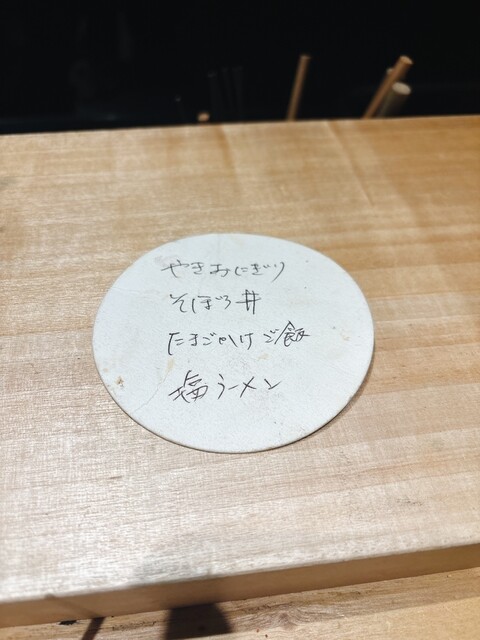 やきおにぎり
そぼろ丼
たまごかけご飯
塩ラーメン